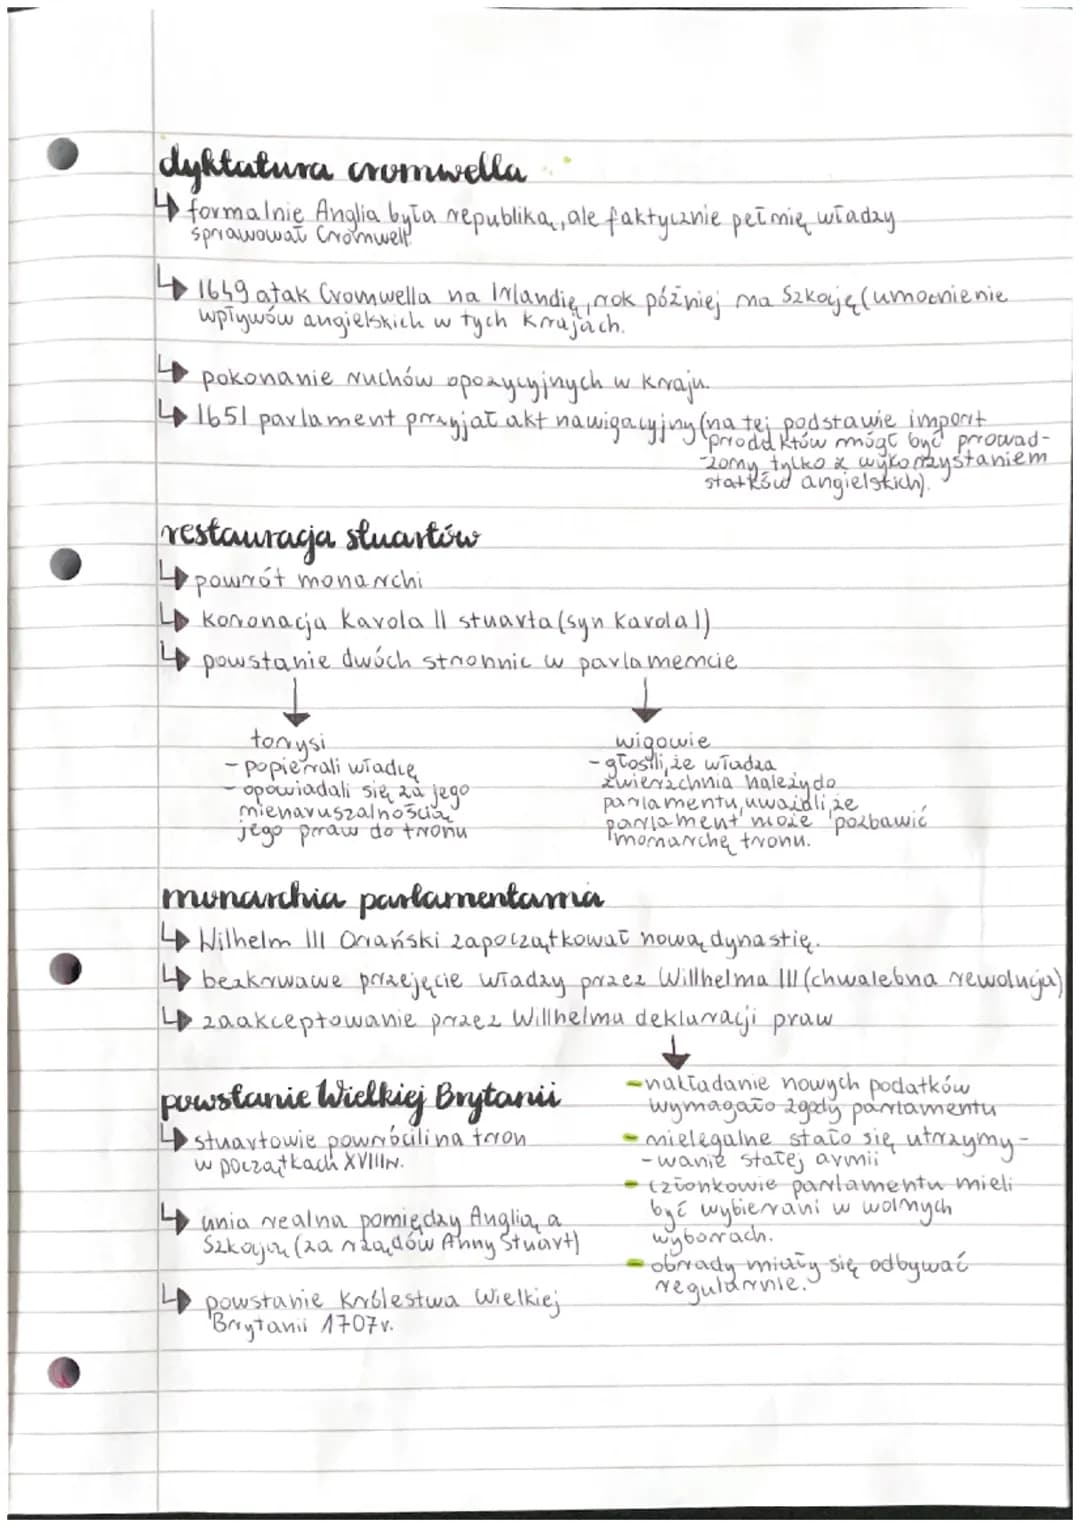 dyktatura cromwella
↳ formalnie Anglia była republiką, ale faktycznie pełnię władzy
sprawował Cromwell.
↳ 1649 atak Cromwella na Irlandię, rok później na Szkocję (umocnienie
wpływów angielskich w tych krajach.
↳ pokonanie ruchów opozycyjnych w kraju.
↳ 1651 parlament przyjął akt nawigacyjny (na tej podstawie import
produktów mógł być prowad-
-zony tylko z wykorzystaniem
statków angielskich).
restauracja stuartów
↳ powrót monarchi
↳ koronacja Karola II stuarta (syn Karola I)
↳ powstanie dwóch stronnic w parlamemcie
torysi
- popierali władzę
- opowiadali się za jego
nienaruszalnością
jego praw do tronu
wigowie
- głosili, że władza
zwierzchnia należy do
parlamentu, uważali, że
parlament może pozbawić
monarchę tronu.
monarchia parlamentarna
↳ Wilhelm III Orański zapoczątkował nową dynastię.
↳ bezkrwawe przejęcie władzy przez Willhelma III (chwalebna rewolucja)
↳ zaakceptowanie przez Willhelma deklaracji praw
- nakładanie nowych podatków
wymagało zgody parlamentu
- nielegalne stało się utrzymy-
-wanie stałej armii
- członkowie parlamentu mieli
być wybierani w wolnych
wyborach.
- obrady miały się odbywać
regularnie.
powstanie Wielkiej Brytanii
↳ stuartowie powrócili na tron
w początkach XVIIIw.
↳ unia realna pomiędzy Anglią a
Szkocją (za rządów Anny Stuart)
↳ powstanie Królestwa Wielkiej
Brytanii 1707r.